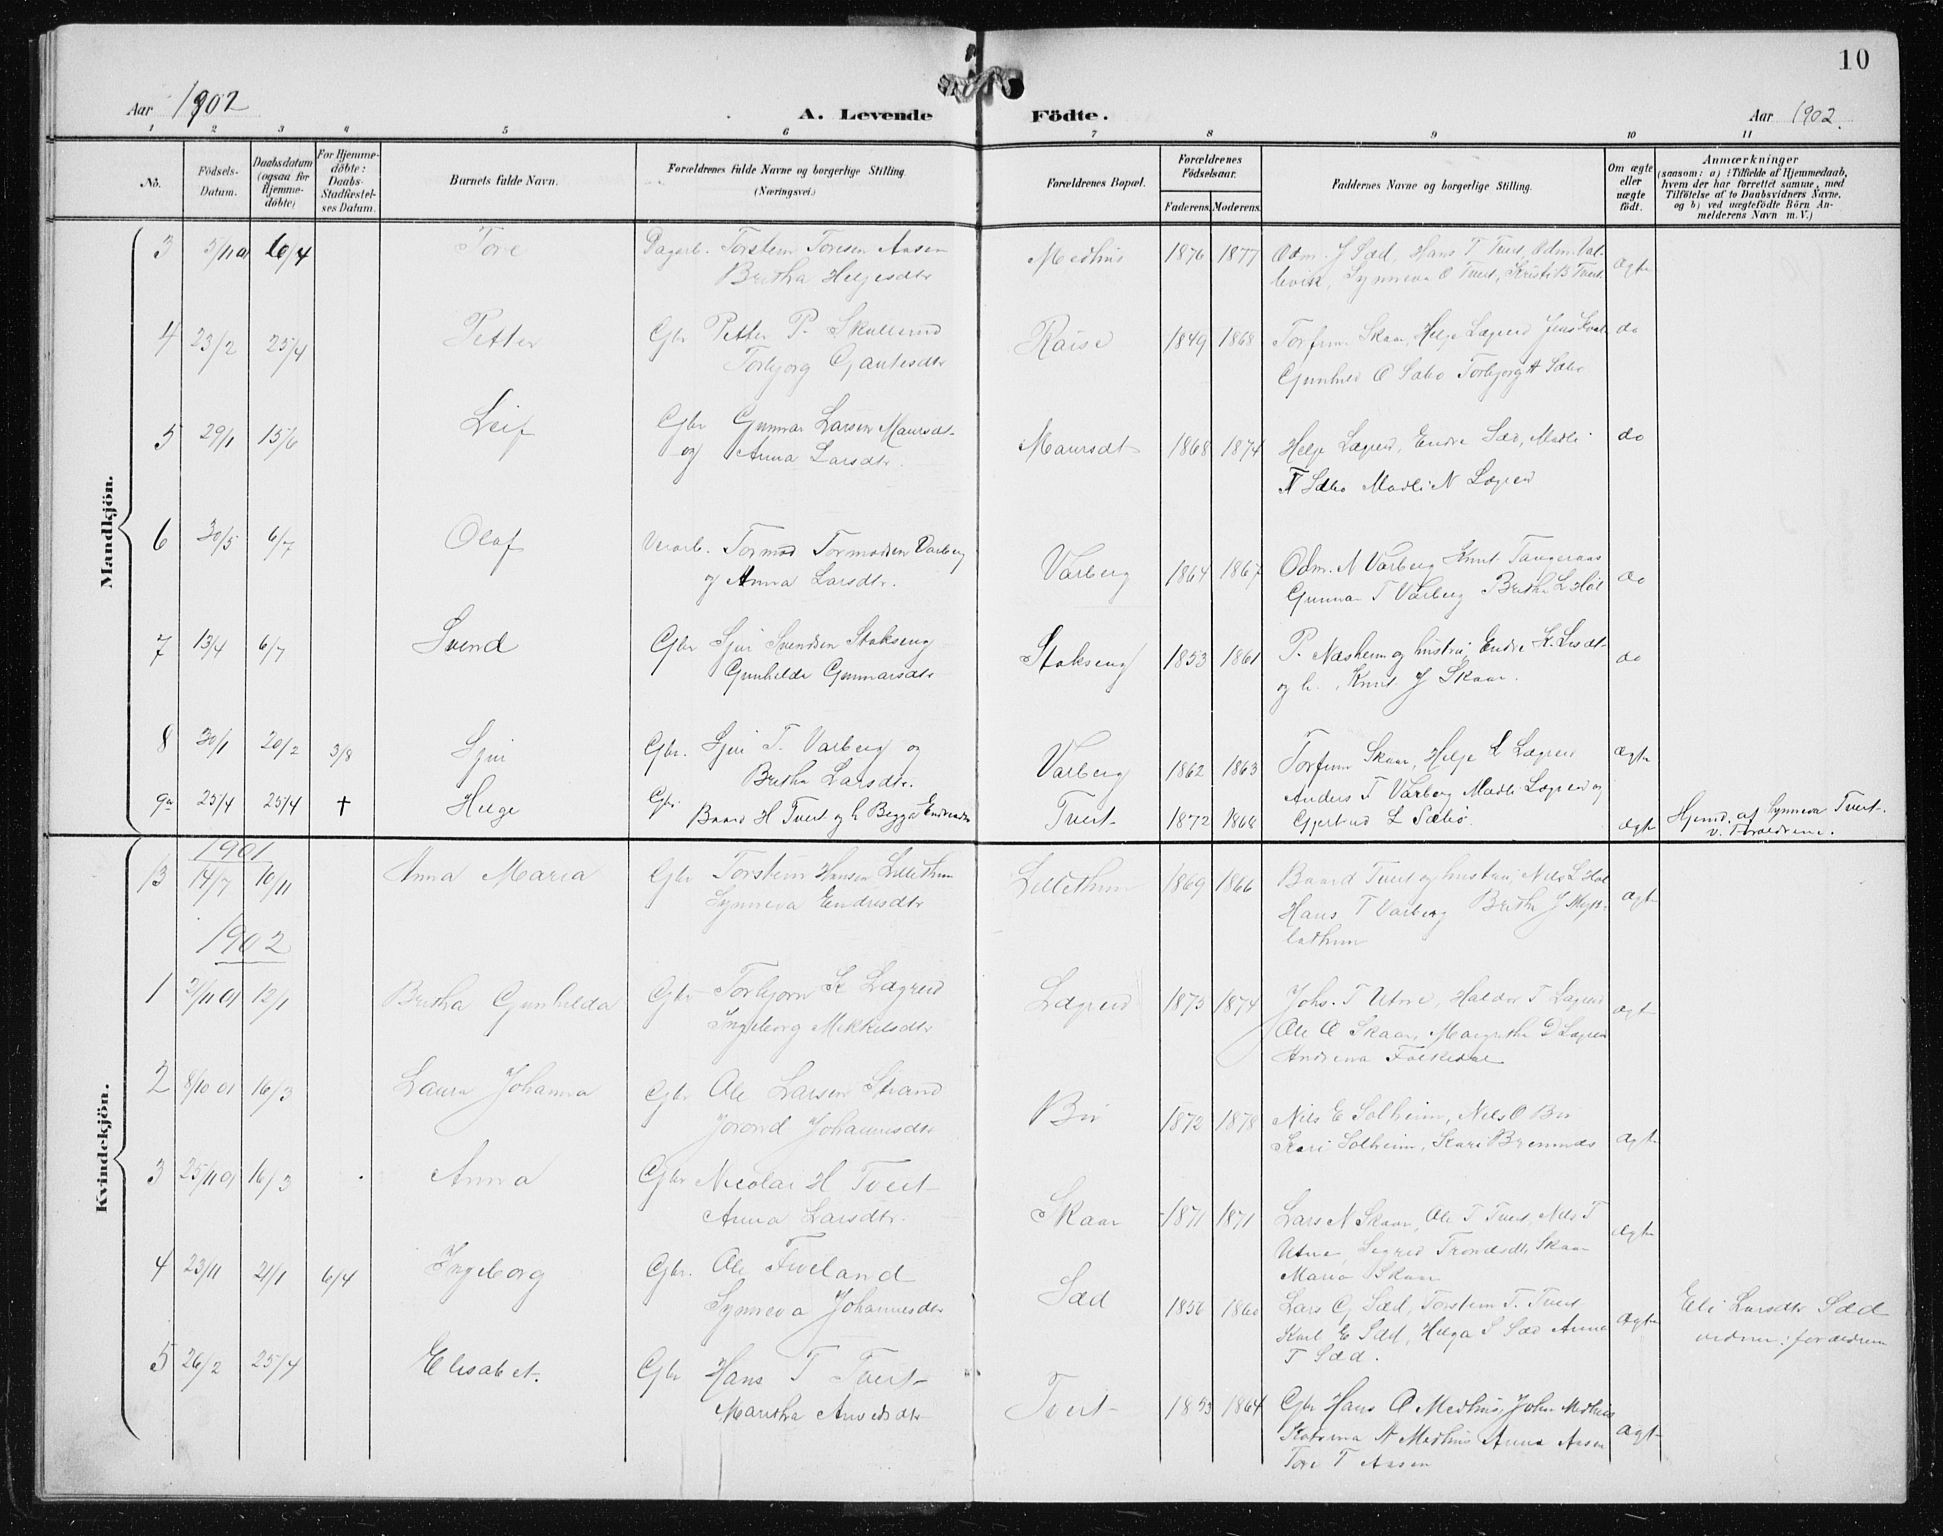 10
Aar 1902
A. Levende Födte.
Aar 1902.
1 2 3 4 5 6 7 8 9 10 11
No.
Födsels-Datum.
Daabsdatum (ogsaa for Hjemmedöbte)
For Hjemmedöbte: Daabs-Stadfæstelses Datum.
Barnets fulde Navn.
Forældrenes fulde Navne og borgerlige Stilling. (Næringsvei.)
Forældrenes Bopæl.
Forældrenes Födselsaar.
Faderens. Moderens.
Faddernes Navne og borgerlige Stilling.
Om ægte eller uægte födt.
Anmærkninger
(saasom: a) i Tilfælde af Hjemmedaab, hvem der har forrettet samme, med Tilföielse af 2 Daabsvidners Navne, og b) ved uægtefödte Börn Anmelderens Navn m. V.)
Mandkjön.
3 5/11 01 6/4 Tore Dagarb. Torstein Toresen Aasen Medhus 1876 1877 Odm. J Sæd, Hans T Tveit, Odm. Val-
Britha Helgesdtr levik, Synneva O Tveit, Kristi B Tveit ægte
4 23/2 25/4 Petter Gbr Petter P. Skullerud Raise 1849 1868 Torfinn Skaar, Helge Lægreid do
Torbjorg Gautesdtr Gunhild O Sæbo Torbjorg A Sæbo
5 29/1 15/6 Leif Gbr Gunnar Larsen Maursdt Maursdt 1868 1874 Helge Lægreid, Endre Sæd, Madli do
og Anna Larsdtr. T Sæbo Madli N Lægreid
6 30/5 6/7 Olaf Tormod Tormodsen Varberg Varberg 1864 1867 Odm. N Varberg Knut Tangeraas do
og Anna Larsdtr. Gunnar T Varberg Britha L Hol
7 13/4 6/7 Svend Gbr Sjur Svendsen Stokseng Stokseng 1853 1861 P. Næsheim og hustru, Endre K. do
Gunhilda Gunnarsdtr og h. , Knut J Skaar.
8 30/1 20/2 3/8 Sjur Gbr. Sjur T. Varberg og Varberg 1862 1863 Torfinn Skaar, Helge L Lægreid ægte
Britha Larsdtr. Anders T Varberg Madli Lægreid og
9a 25/4 25/4 † Helge Gbr. Baard H Tveit og h Begga Endresdtr Tveit 1872 1868 Gjertrud L Sæbø. ægte Hjemd. af Synneva Tveit.
v. Foraldrene.
Kvindekjön.
1901
13 14/7 10/11 Anna Maria Gbr Torstein Hansen Lillethun Lillethun 1869 1866 Baard Tveit og hustru, Nils L Hol
Synneva Endresdtr Hans T Varberg Britha J ægte
lathun
1902
1 3/11 01 12/1 Britha Gunhilda Gbr Torbjorn K Lægreid Lægreid 1873 1874 Johs. T Utne, Haldor T Lægreid
Ingeborg Mikkelsdtr Ole O Skaar, Margretha D Lægreid ægt
Andrena Folkedal
2 8/10 01 16/3 Laura Johanna Gbr Ole Larsen Strand Bu 1872 1878 Nils E Solheim, Nils O Bu
Jorond Johannesdtr Kari Solheim, Kari Bremnes ægte
3 25/11 01 16/3 Anna Gbr Nicolai H Tveit Skaar 1871 1871 Lars N Skaar, Ole T Tveit, Nils T
Anna Larsdtr. Utne, Sigrid Trondsdtr Skaar ægte
Maria Skaar
4 23/11 21/1 6/4 Ingeborg Gbr. Ole Tveland Sæd 1856 1860 Lars G Sæd, Torstein T. Tveit ægte Eli Larsdtr Sæd
Synneva Johannesdtr Karl E Sæd, Helga S Sæd Anna
T Sæd.
5 26/2 25/4 Elisabet. Gbr Hans T Tveit Tveit 1853 1864 Gbr Hans O Medhus, John Medhus
Maritha Arvedsdtr Katrina A Medhus Anna Aasen ægt
Tore T Aasen